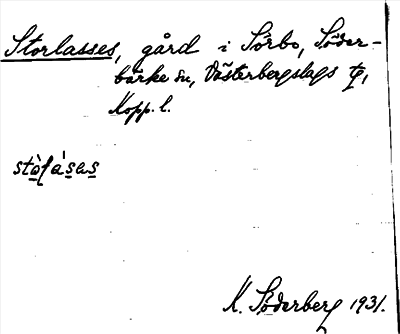 Storlasses, gård i Sörbo, Söder-
bärke sn, Västerbergslags tg,
Kopp. l.
K. Söderberg 1931.